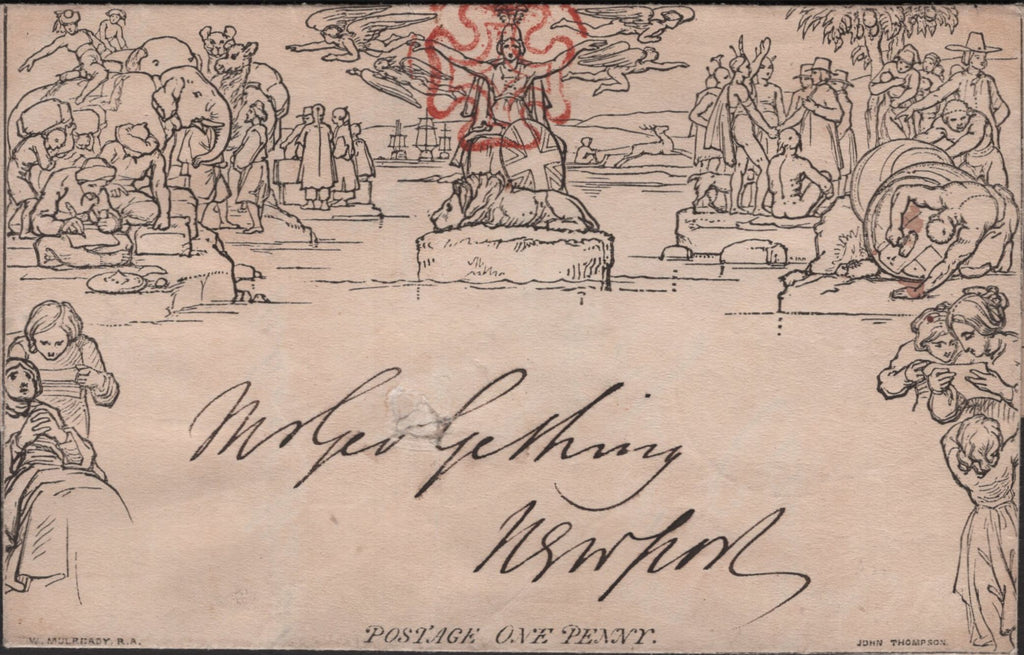 Mr Geo Gething
Newport
W. MULREADY. R.A.
POSTAGE ONE PENNY.
JOHN THOMPSON.